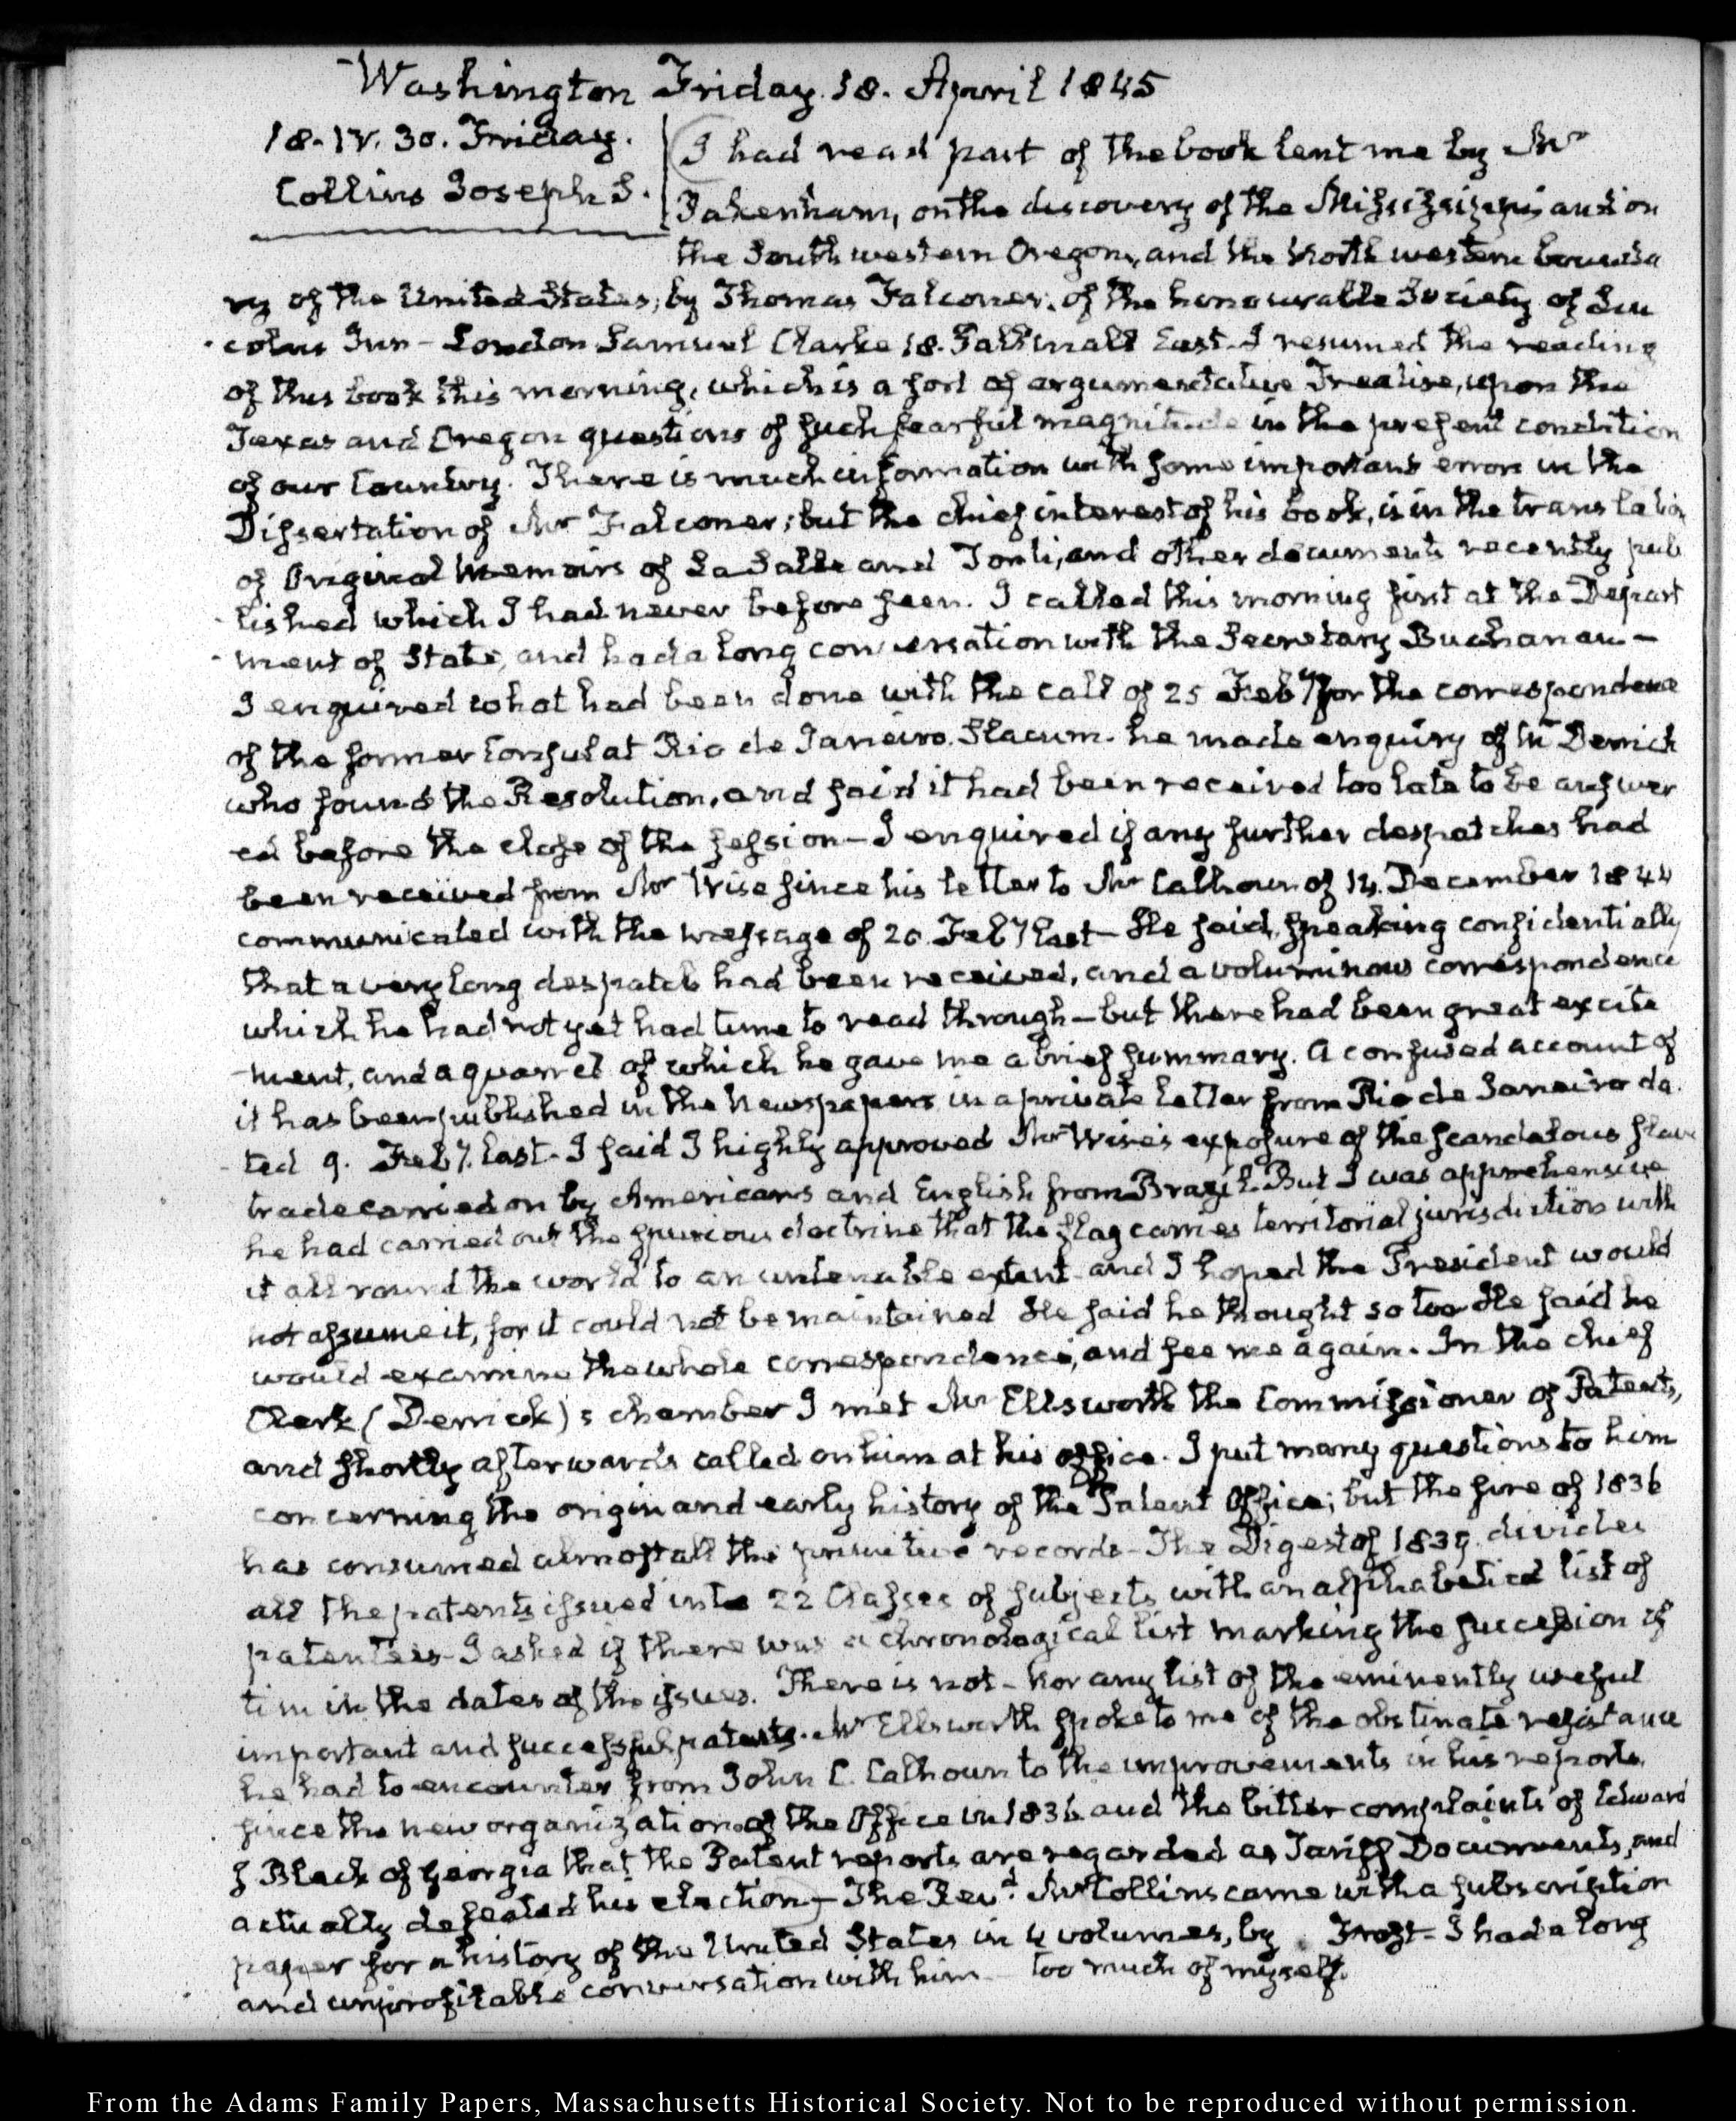 Washington Friday. 18. April 1845
18. IV. 30. Friday.
Collins Joseph S.
I had read part of the book lent me by Mr
Pakenham, on the discovery of the Mississippi and on
the South western Oregon, and the North western bounda
ry of the United States, by Thomas Falconer. of the honourable Society of Lin
colns Inn – London Samuel Clarke 18. Pall mall East. I resumed the reading
of this book this morning, which is a sort of argumentative Treatise, upon the
Texas and Oregon questions of such fearful magnitude in the present condition
of our Country. There is much information with some important errors in the
Dissertation of Mr Falconer; but the chief interest of his book, is in the translation
of Original Memoirs of La Salle and Tonti, and other documents recently pub
lished which I had never before seen. I called this morning first at the Depart
ment of State, and had a long conversation with the Secretary Buchanan –
I enquired what had been done with the call of 25 Feby for the correspondence
of the former Consul at Rio de Janeiro. Slacum. he made enquiry of Mr Derrick
who found the Resolution, and said it had been received too late to be answer
ed before the close of the session – I enquired if any further despatches had
been received from Mr Wise since his letter to Mr Calhoun of 14. December 1844
communicated with the message of 20. Feby last – He said, speaking confidentially
that a very long despatch had been received, and a voluminous correspondence
which he had not yet had time to read through – but there had been great excite
ment, and a quarrel of which he gave me a brief summary. A confused account of
it has been published in the Newspapers in a private letter from Rio de Janeiro da
ted 9. Feby. last. I said I highly approved Mr Wise's exposure of the scandalous slave
trade carried on by Americans and English from Brazil. But I was apprehensive
he had carried out the spurious doctrine that the flag carries territorial jurisdiction with
it all round the world to an untenable extent and I hoped the President would
not assume it, for it could not be maintained He said he thought so too He said he
would examine the whole correspondence, and see me again. In the chief
Clerk (Derrick)s chamber I met Mr Ellsworth the Commissioner of Patents,
and shortly afterwards called on him at his office. I put many questions to him
concerning the origin and early history of the Patent Office; but the fire of 1836
has consumed almost all the primitive records – The Digest of 1839. divides
all the patents issued into 22 Classes of subjects with an alphabetical list of
patentees – I asked if there was a chronological list marking the succession of
tim in the dates of the issues. There is not – nor any list of the eminently useful
important and successful patents. Mr Ellsworth spoke to me of the obstinate resistance
he had to encounter from John C. Calhoun to the improvements in his reports
since the new organization of the Office in 1836 and the bitter complaints of Edward
J Black of Georgia that the Patent reports are regarded as Tariff Documents, and
actually defeated his election – The Revd. Mr Collins came with a subscription
paper for a history of the United States in 4 volumes, by Frost – I had a long
and unprofitable conversation with him too much of myself.
From the Adams Family Papers, Massachusetts Historical Society. Not to be reproduced without permission.